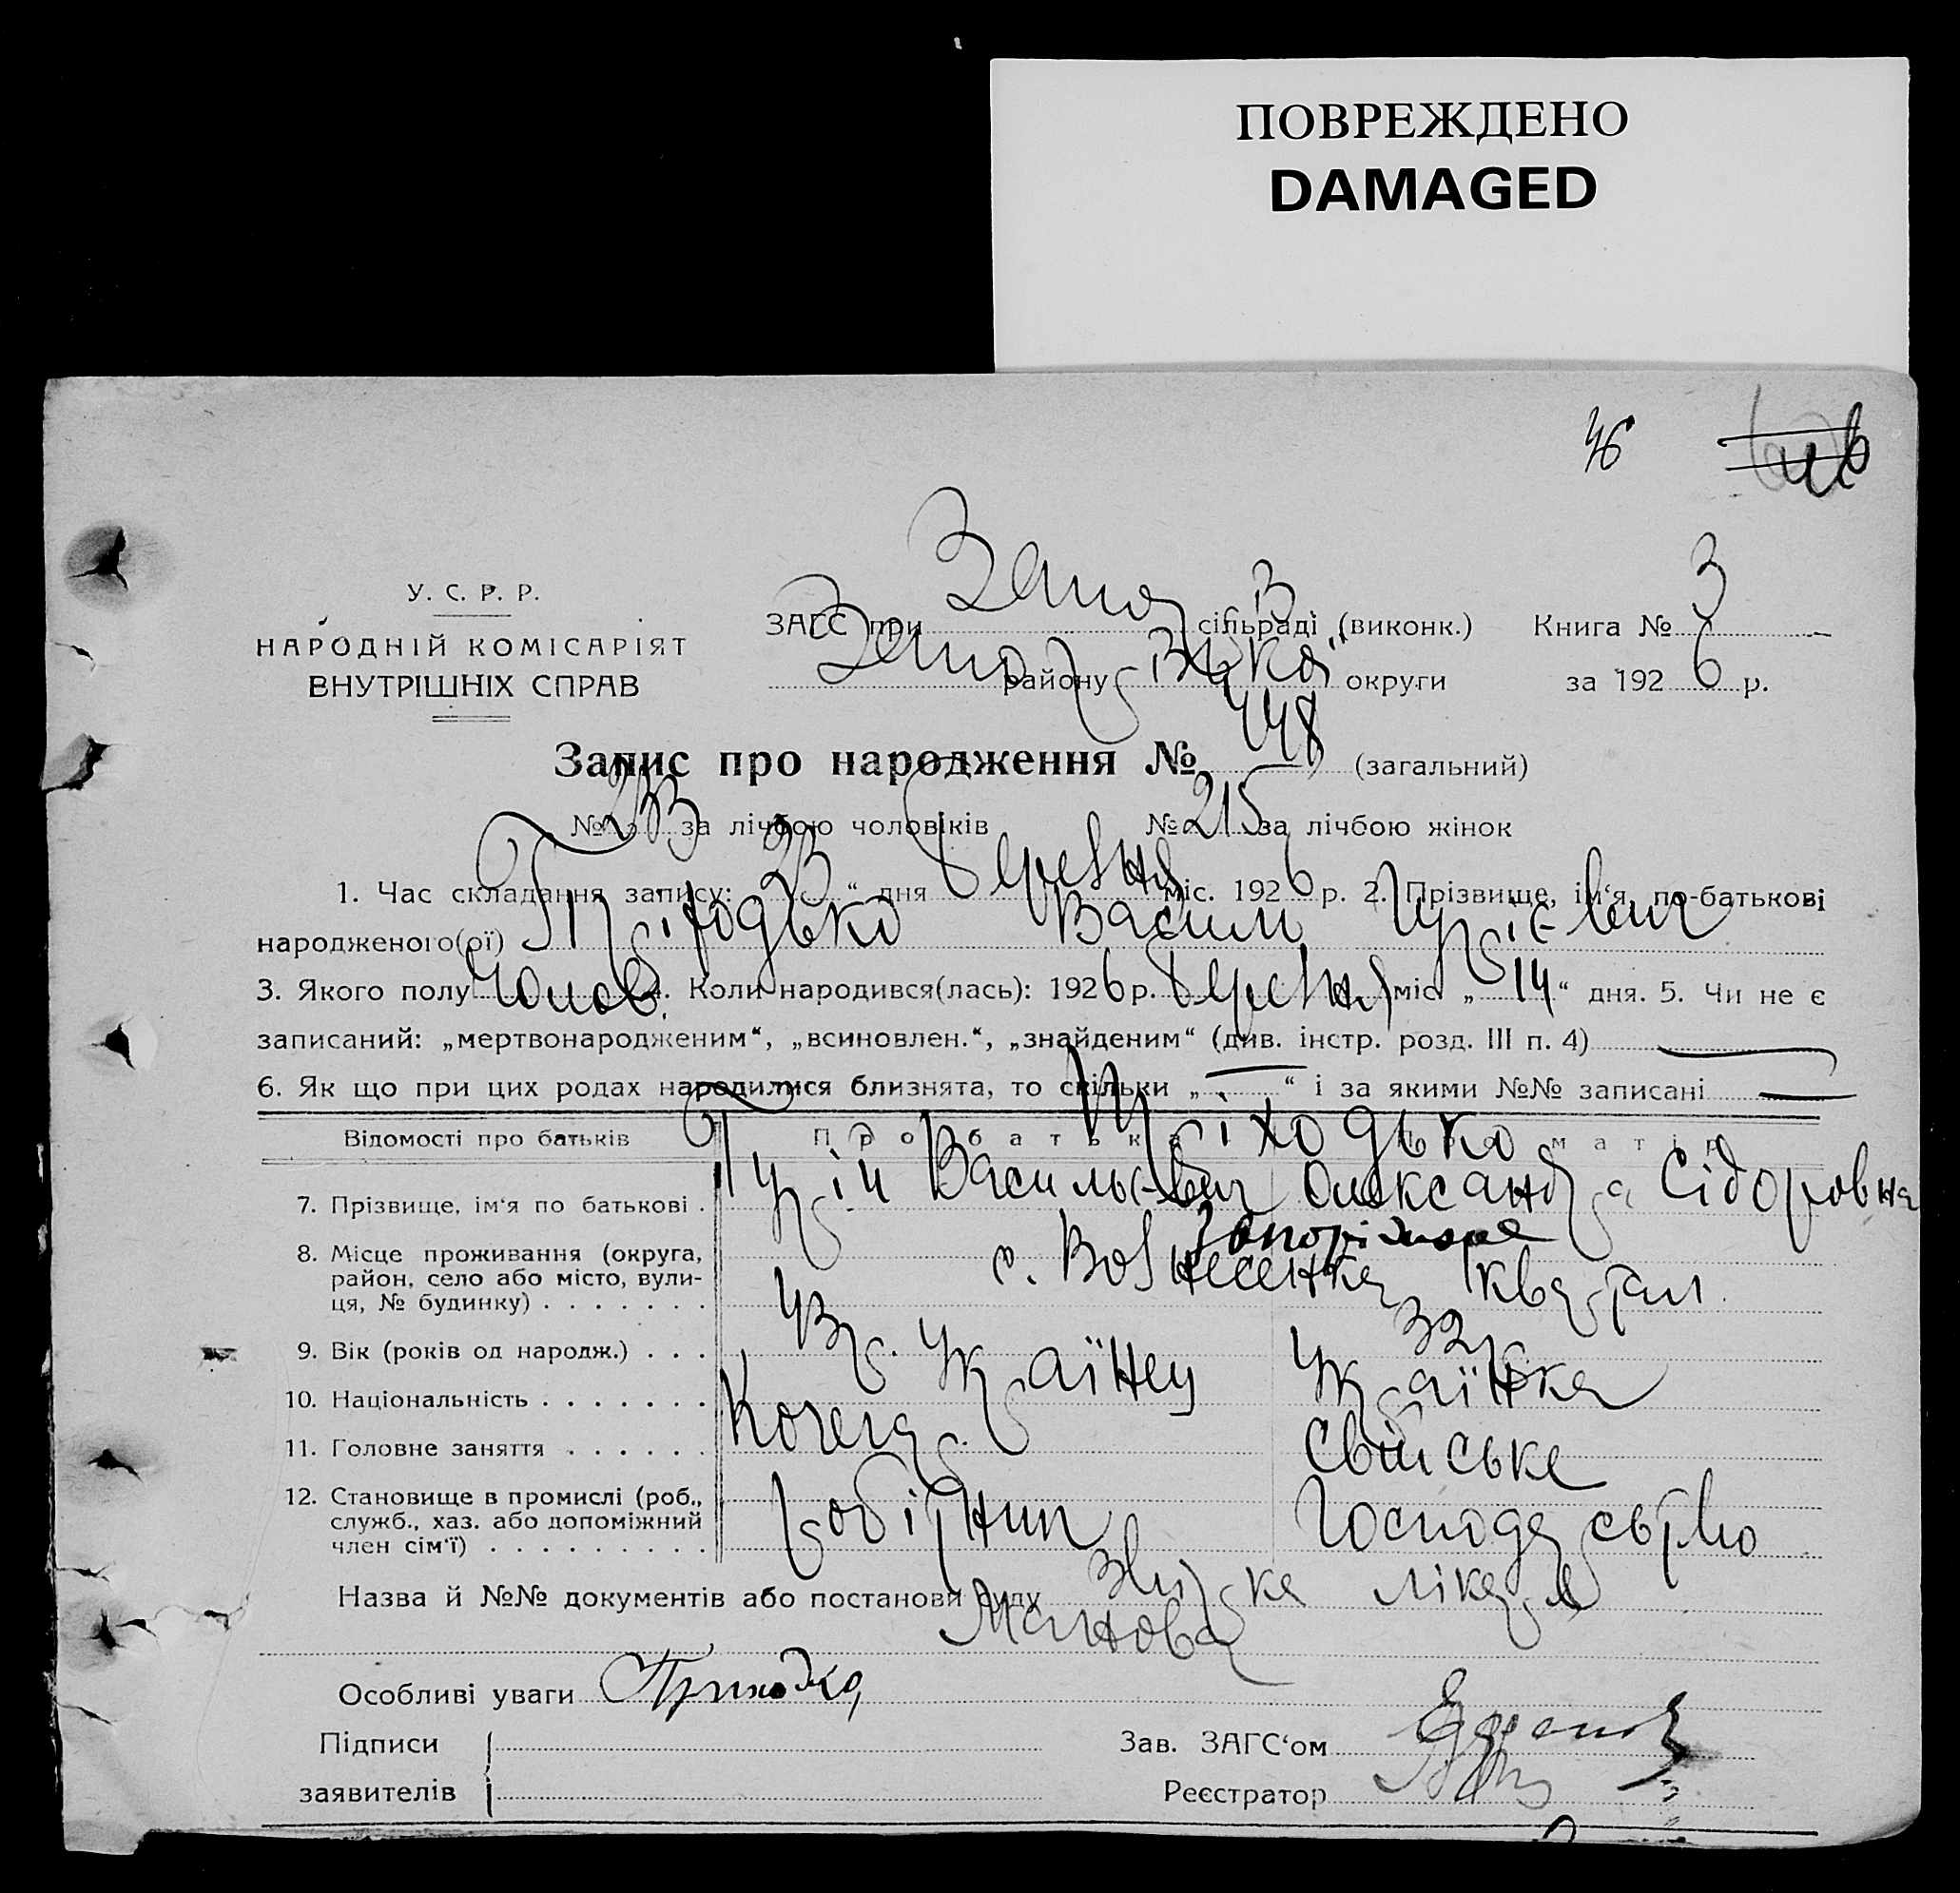 ПОВРЕЖДЕНО
DAMAGED
46
У. С. Р. Р.
НАРОДНІЙ КОМІСАРІЯТ
ВНУТРІШНІХ СПРАВ
ЗАГС при сільраді (виконк.) Книга № 3
району округи за 1926 р.
Запис про народження № 448 (загальний)
№ 233 за лічбою чоловіків № 215 за лічбою жінок
1. Час складання запису: „23“ дня березня міс. 1926 р. 2. Прізвище, ім‘я, по-батькові
народженого(ої) Пріходько Василь Гурієвич
3. Якого полу Чолов. 4. Коли народився(лась): 1926 р. березня міс. „14“ дня. 5. Чи не є
записаний: „мертвонародженим“, „всиновлен.“, „знайденим“ (див. інстр. розд. III п. 4) —
6. Як що при цих родах народилися близнята, то скільки „—“ і за якими №№ записані —
Відомості про батьків Про батька Про матір
Пріходько
7. Прізвище, ім‘я по батькові . Гурій Васильєвич Олександра Сідоровна
8. Місце проживання (округа, район, село або місто, вули-ця, № будинку) . . . . . . . Запоріжжя
с. Вознесенка квартал
9. Вік (років од народж.) . . . 43 р. 32 р.
10. Національність . . . . . . . Українец Українка
11. Головне заняття . . . . . . Кочегар свійське
12. Становище в промислі (роб., служб., хаз. або допоміжний член сім‘ї) . . . . . . . . . робітник господарство
Назва й №№ документів або постанови суду лікаря
Особливі уваги Приходко
Підписи Зав. ЗАГС‘ом
заявителів Реєстратор